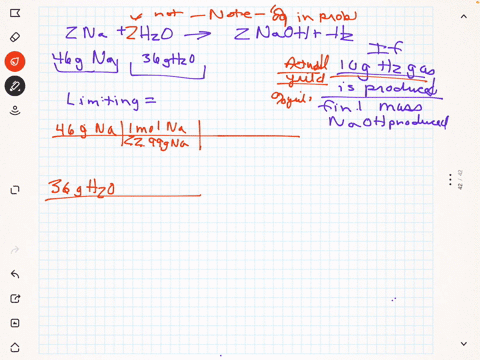 not - Note -
in prob
2 Na + 2H2O → 2 NaOH + H2
46g Na 36gH2O
If
Actual yield
10g H2 gas
is produced
find mass
NaOH produced
Limiting =
46g Na | 1mol Na
22.99gNa
36gH2O
42 / 42